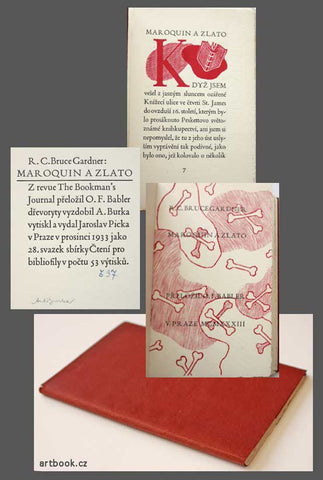 MAROQUIN A ZLATO
KDYŽ JSEM
vešel z jasným sluncem ozářené
Knížecí ulice ve čtvrti St. James
do ovzduší 16. století, kterým by-
lo prosáknuto Peskettovo světo-
známé knihkupectví, ani jsem si
nepomyslel, že tu z jeho úst usly-
ším vyprávění tak podivné, jako
bylo ono, jež kolovalo u několik
7
R. C. Bruce Gardner:
MAROQUIN A ZLATO
Z revue The Bookman's
Journal přeložil O. F. Babler
dřevoryty vyzdobil A. Burka
vytiskl a vydal Jaroslav Picka
v Praze v prosinci 1933 jako
28. svazek sbírky Čtení pro
bibliofily v počtu 53 výtisků.
č 37
R. C. BRUCE GARDNER
MAROQUIN A ZLATO
PŘELOŽIL O. F. BABLER
V PRAZE MCMXXXIII
artbook.cz